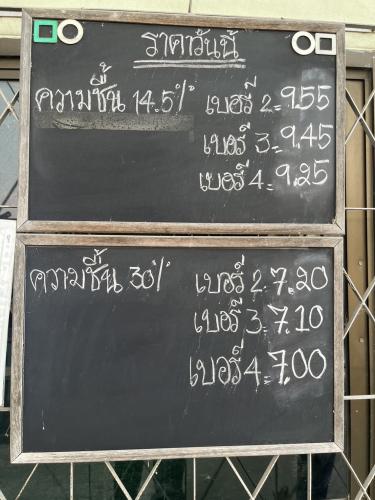 ราคาวันนี้
ความชื้น 14.5% เบอร์ 2 = 9.55
เบอร์ 3 = 9.45
เบอร์ 4 = 9.25
ความชื้น 30% เบอร์ 2 = 7.20
เบอร์ 3 = 7.10
เบอร์ 4 = 7.00